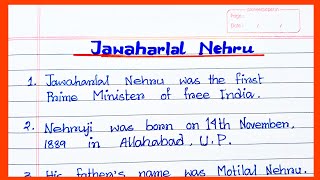 Page:
Date: / /
Jawaharlal Nehru
1. Jawaharlal Nehru was the first
Prime Minister of free India.
2. Nehruji was born on 14th November,
1889 in Allahabad, U.P.
3. His father's name was Motilal Nehru.